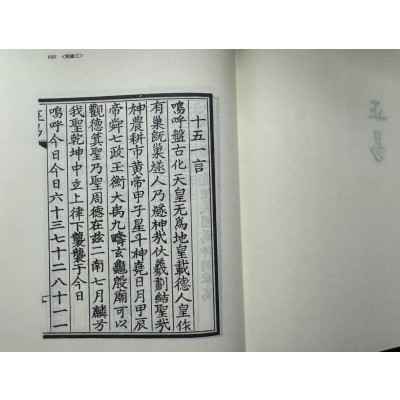 正易
十五一言
嗚呼盤古化天皇无爲地皇載德人皇作
有巢旣巢燧人乃燧神哉伏羲劃結聖哉
神農耕市黃帝甲子星斗神堯日月甲辰
帝舜七政玉衡大禹九疇玄龜殷廟可以
觀德箕聖乃聖周德在玆二南七月麟兮
我聖乾坤中立上律下襲襲于今日
嗚呼今日今日六十三七十二八十一一